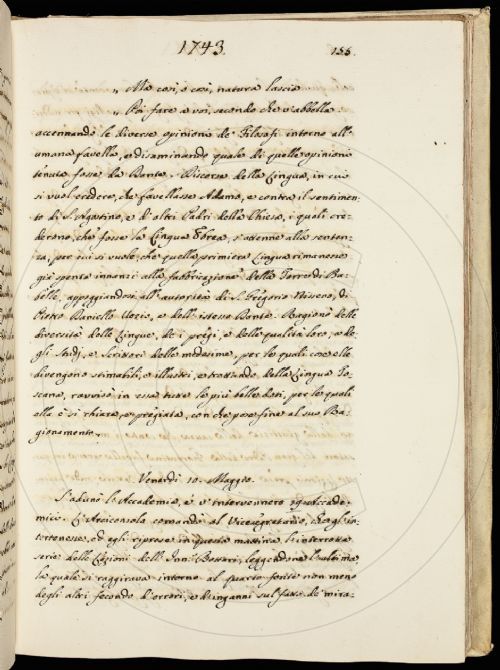 1743.
155.
„ Ma così, o così, natura lascia
„ Poi fare a voi, secondo che v'abbella
accennando le diverse opinioni de' Filosofi intorno all'
umana favella, e disaminando quale di quelle opinioni
tenuta fosse da Dante. Discorse della Lingua, in cui
si vuol credere, che favellasse Adamo, e contra il sentimen=
to di S. Agostino, e di altri Padri della Chiesa, i quali cre=
derono, che fosse la Lingua Ebrea, s'attenne alla senten=
za, per cui si vuole che quella primiera Lingua rimanesse
già spenta innanzi alla fabbricazione della Torre di Ba=
belle, appoggiandosi all'autorità di S. Gregorio Nisseno, di
Pietro Daniello Uezio, e dello istesso Dante. Ragionò delle
diversità delle Lingue, de i pregi, e delle qualità loro, e de=
gli Studj, e Scrittori delle medesime, per le quali cose elle
divengono stimabili, e illustri, e trattando della Lingua To=
scana, ravvisò in essa tutte le più belle doti, per le quali
ella è sì chiara, e pregiata, con che pose fine al suo Ra=
gionamento.
Venerdì 10. Maggio.
S'adunò l'Accademia, e v'intervennero Accade=
mici. L'Arciconsolo comandò al Vicesegretario, che gl'in=
tertenesse, ed egli riprese in questa mattina l'interrotta
serie delle Lezioni dell' Inn. Bottari, leggendone l'ultima,
la quale si raggirava intorno al quarto fonte non meno
degli altri fecondo d'errori, e d'inganni sul fatto de' mira=